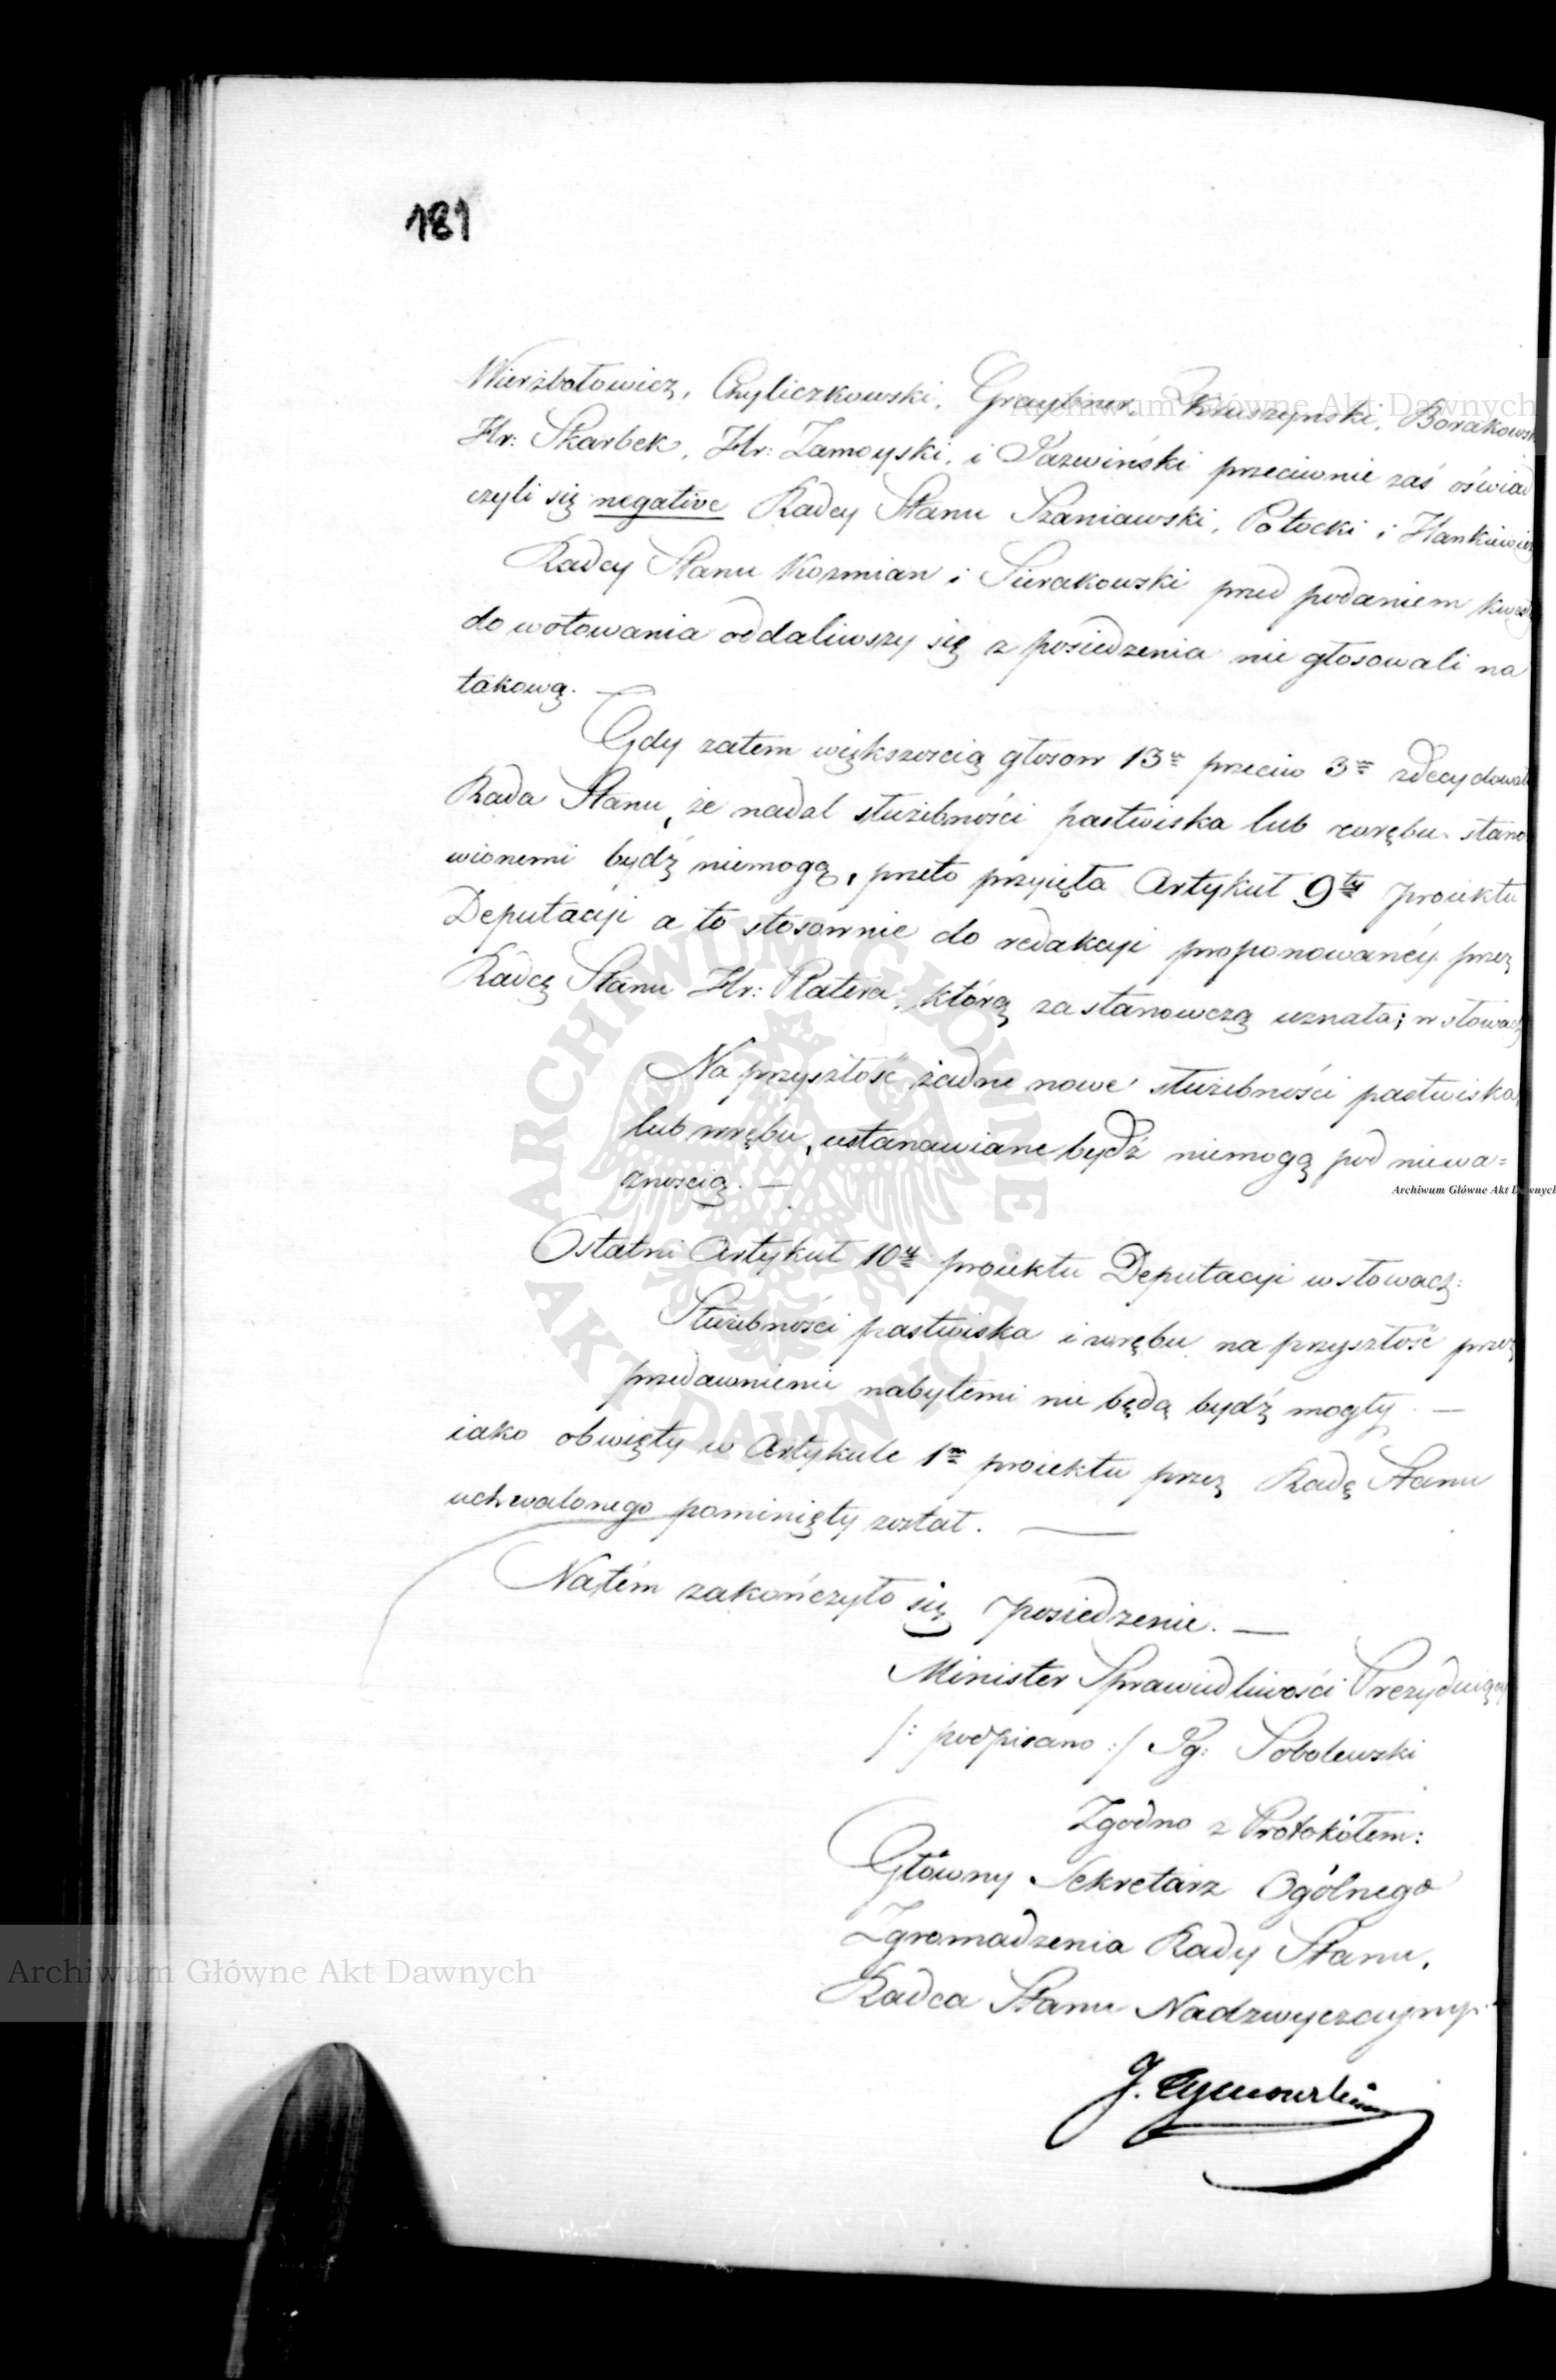 181
Wierzbołowicz, Chyliczkowski, Graybner, Kruszynski, Borakowsk
Hr: Skarbek, Hr: Zamoyski, i Parzewiński przeciwnie zaś oświad
czyli się negative Radcy Stanu Szaniawski, Potocki i Hankiewicz
Radcy Stanu Kozmian i Sierakowski przed podaniem kwes
do wotowania oddaliwszy się z posiedzenia nie głosowali na
takową.
Gdy zatem większoscią głosow 13u przeciw 3m zdecydowała
Rada Stanu, że nadal służebności pastwiska lub wrębu stano
wionemi bydź niemogą, przeto przyięła Artykuł 9ty proiektu
Deputacyi a to stosownie do redakcyi proponowanéy przez
Radcę Stanu Hr: Platera, którą za stanowczą uznała; w słowach
Na przyszłość żadne nowe służebności pastwiska,
lub wrębu, ustanawiane bydź niemogą pod niewa=
żnoscią. —
Ostatni Artykuł 10y proiektu Deputacyi w słowach:
Służebności pastwiska i wrębu na przyszłość przez
przedawnienie nabytemi nie będą bydź mogły. —
iako obwięty w Artykule 1m proiektu przez Radę Stanu
uchwalonego pominięty został. —
Natém zakończyło się posiedzenie. —
Minister Sprawiedliwości Prezyduiący
/: podpisano :/ Ig: Sobolewski
Zgodno z Protokółem:
Główny Sekretarz Ogólnego
Zgromadzenia Rady Stanu,
Radca Stanu Nadzwyczayny.
J. Tymowski
Archiwum Główne Akt Dawnych
Archiwum Główne Akt Dawnych
Archiwum Główne Akt Dawnych
ARCHIWUM GŁÓWNE · AKT DAWNYCH ·